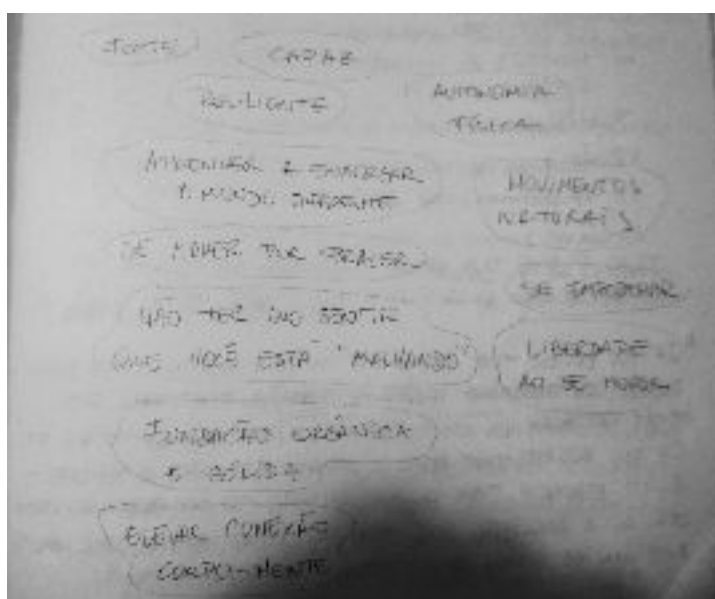 FORTE
CAPAZ
RESILIENTE
AUTONOMIA
FÍSICA
APRENDER A ENXERGAR
O MUNDO DIFERENTE
MOVIMENTOS
NATURAIS
SE MOVER POR PRAZER
SE
NÃO TER QUE SENTIR
QUE VOCÊ ESTÁ "MALHANDO"
LIBERDADE
AO SE MOVER
FUNDAÇÃO ORGÂNICA
E SÓLIDA
ELEVAR CONEXÃO
CORPO-MENTE